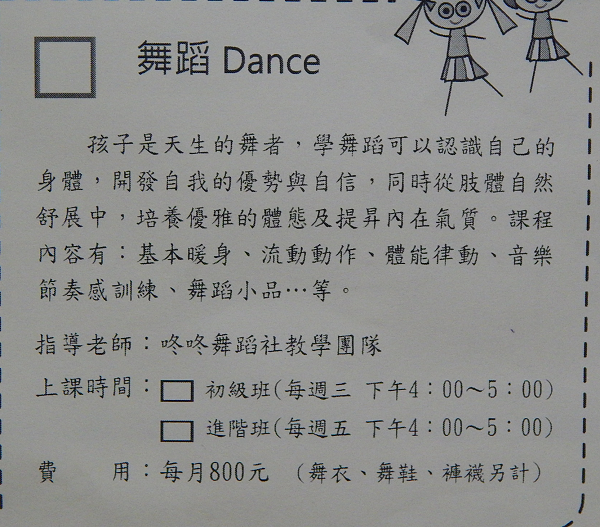 舞蹈 Dance
孩子是天生的舞者，學舞蹈可以認識自己的
身體，開發自我的優勢與自信，同時從肢體自然
舒展中，培養優雅的體態及提昇內在氣質。課程
內容有：基本暖身、流動動作、體能律動、音樂
節奏感訓練、舞蹈小品…等。
指導老師：咚咚舞蹈社教學團隊
上課時間：□ 初級班(每週三 下午4：00～5：00)
□ 進階班(每週五 下午4：00～5：00)
費　　用：每月800元 （舞衣、舞鞋、褲襪另計）